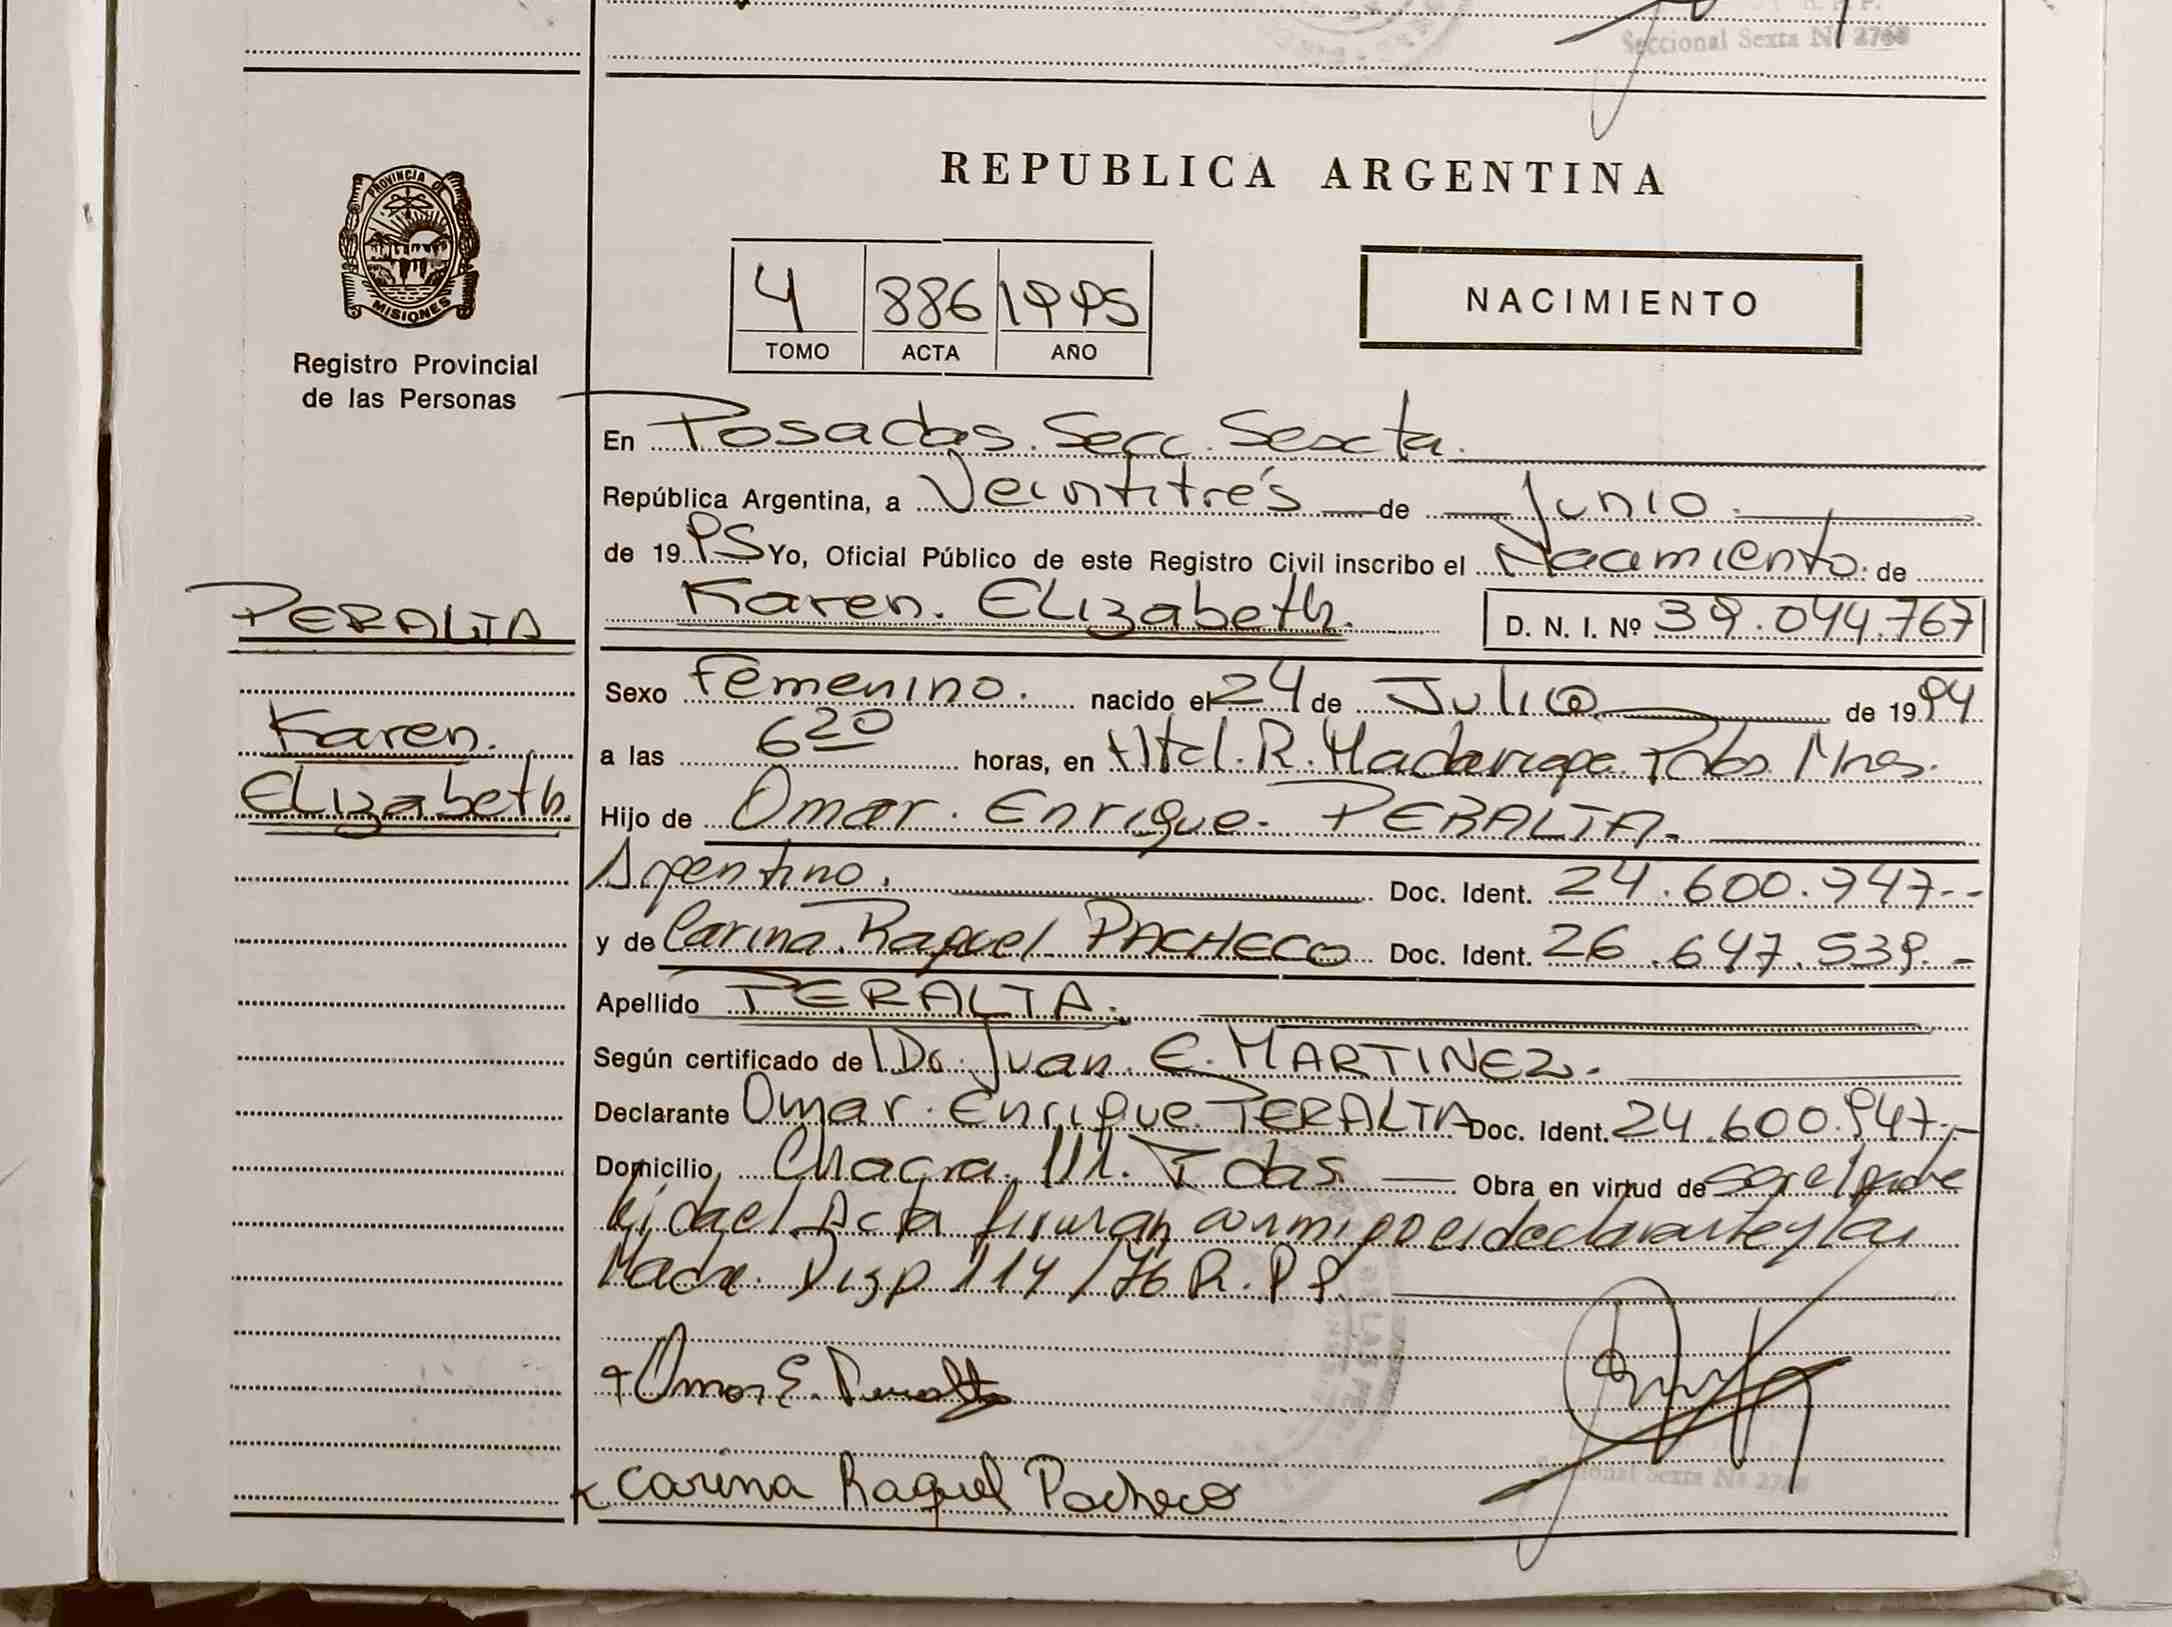 Seccional Sexta Nº 2768
REPUBLICA ARGENTINA
PROVINCIA DE
MISIONES
Registro Provincial
de las Personas
4 886 1995
TOMO ACTA AÑO
NACIMIENTO
En Posadas. Secc. Sexta.
República Argentina, a Veintitrés de Junio.
de 1995 Yo, Oficial Público de este Registro Civil inscribo el Nacimiento. de
Karen. Elizabeth. D. N. I. Nº 39.044.767
PERALTA
Karen.
Elizabeth.
Sexo Femenino. nacido el 24 de Julio de 1994
a las 6 20 horas, en Htal. R. Madariaga. Pdas. Mnes.
Hijo de Omar. Enrique. PERALTA.
Argentino. Doc. Ident. 24.600.947.--
y de Carina. Raquel. PACHECO Doc. Ident. 26.647.539.-
Apellido PERALTA.
Según certificado de Dr. Juan. E. MARTINEZ.
Declarante Omar. Enrique PERALTA Doc. Ident. 24.600.947.-
Domicilio Chacra. 111. Pdas. Obra en virtud de ser el padre
del Acta firman conmigo el declarante y la
Madre. Disp. 114/76 R.P.P.
Omar E. Peralta
Carina Raquel Pacheco
Seccional Sexta Nº 2768